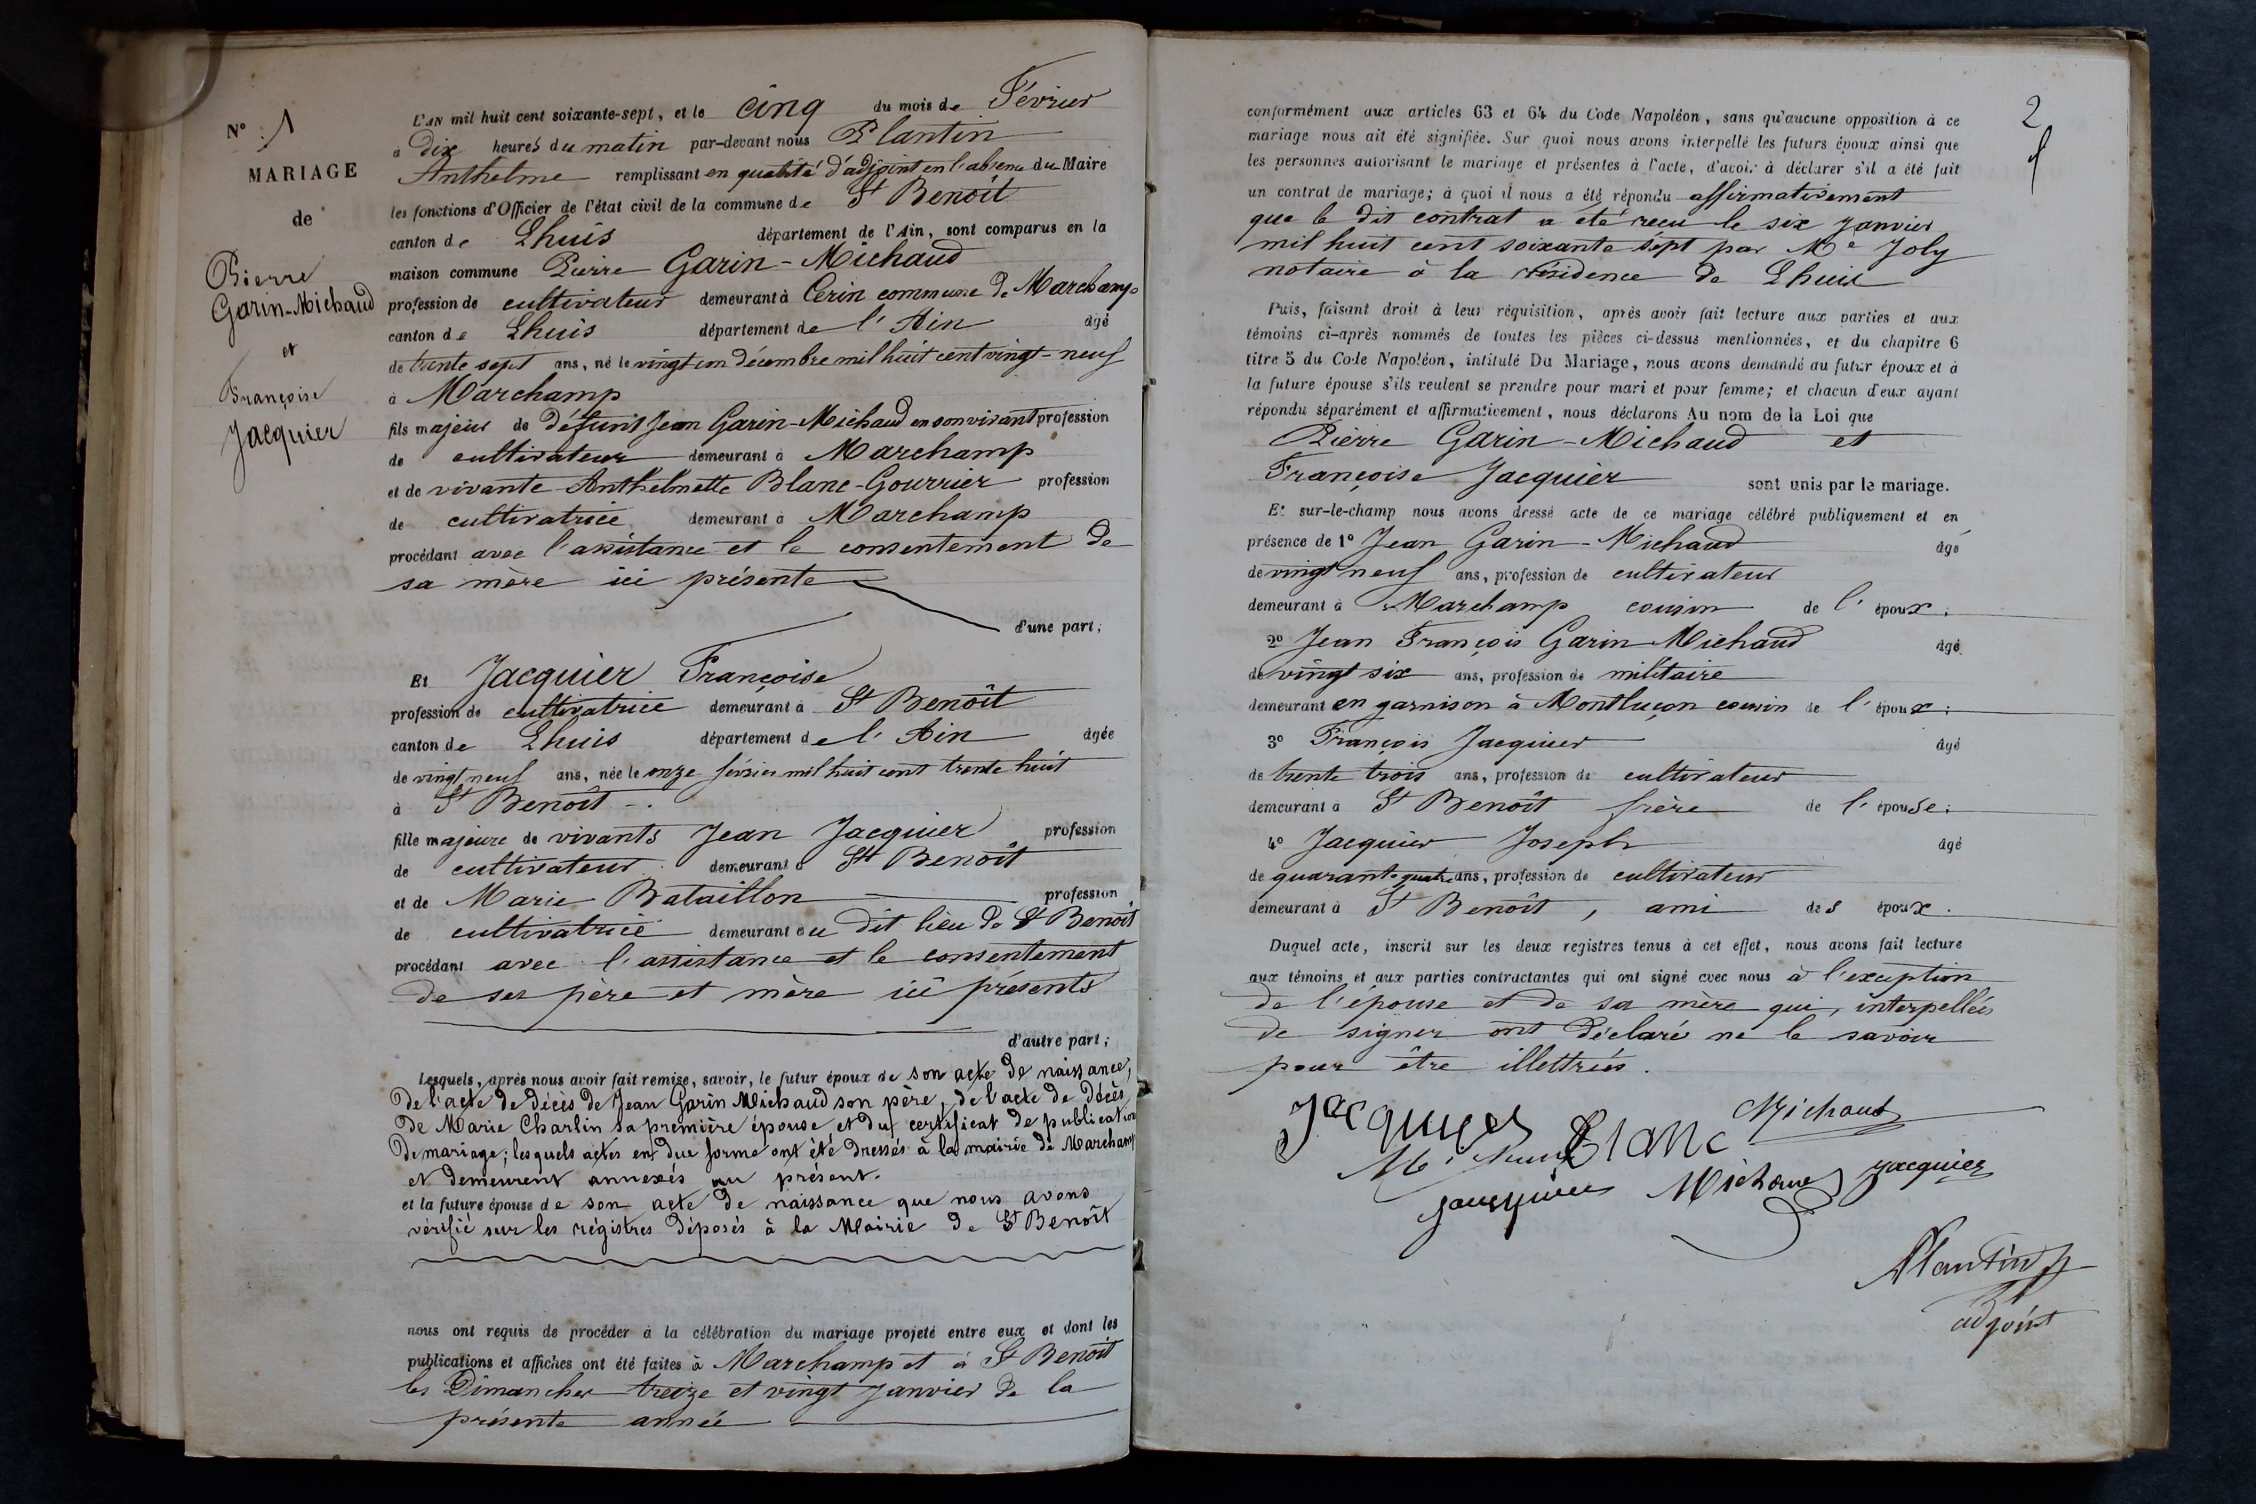 N° : 1
MARIAGE
de
Pierre
Garin-Michaud
et
Françoise
Jacquier
L'AN mil huit cent soixante-sept, et le cinq du mois de Février
à dix heures du matin par-devant nous Plantin
Anthelme remplissant en qualité d'adjoint en l'absence du Maire
les fonctions d'Officier de l'état civil de la commune de St Benoît
canton de Lhuis département de l'Ain, sont comparus en la
maison commune Pierre Garin-Michaud
profession de cultivateur demeurant à Cerin commune de Marchamp
canton de Lhuis département de l'Ain âgé
de trente sept ans, né le vingt un décembre mil huit cent vingt-neuf
à Marchamp
fils majeur de défunt Jean Garin-Michaud en son vivant profession
de cultivateur demeurant à Marchamp
et de vivante Anthelmette Blanc-Gourrier profession
de cultivatrice demeurant à Marchamp
procédant avec l'assistance et le consentement de
sa mère ici présente
d'une part;
Et Jacquier Françoise
profession de cultivatrice demeurant à St Benoît
canton de Lhuis département de l'Ain âgée
de vingt neuf ans, née le onze février mil huit cent trente huit
à St Benoît -.
fille majeure de vivants Jean Jacquier profession
de cultivateur demeurant à St Benoît
et de Marie Bataillon profession
de cultivatrice demeurant au dit lieu de St Benoît
procédant avec l'assistance et le consentement
de ses père et mère ici présents
d'autre part;
Lesquels, après nous avoir fait remise, savoir, le futur époux de son acte de naissance,
de l'acte de décès de Jean Garin Michaud son père, de l'acte de décès
de Marie Charlin sa première épouse et du certificat de publication
de mariage; lesquels actes en due forme ont été dressés à la mairie de Marchamp
et demeurent annexés au présent.
et la future épouse de son acte de naissance que nous avons
vérifié sur les régistres déposés à la Mairie de St Benoît
nous ont requis de procéder à la célébration du mariage projeté entre eux et dont les
publications et affiches ont été faites à Marchamp et à St Benoît
les Dimanches treize et vingt janvier de la
présente année
2
conformément aux articles 63 et 64 du Code Napoléon, sans qu'aucune opposition à ce
mariage nous ait été signifiée. Sur quoi nous avons interpellé les futurs époux ainsi que
les personnes autorisant le mariage et présentes à l'acte, d'avoir à déclarer s'il a été fait
un contrat de mariage; à quoi il nous a été répondu affirmativement
que le dit contrat a été reçu le six janvier
mil huit cent soixante sept par Me Joly
notaire à la résidence de Lhuis
Puis, faisant droit à leur réquisition, après avoir fait lecture aux parties et aux
témoins ci-après nommés de toutes les pièces ci-dessus mentionnées, et du chapitre 6
titre 5 du Code Napoléon, intitulé Du Mariage, nous avons demandé au futur époux et à
la future épouse s'ils veulent se prendre pour mari et pour femme; et chacun d'eux ayant
répondu séparément et affirmativement, nous déclarons Au nom de la Loi que
Pierre Garin-Michaud et
Françoise Jacquier sont unis par le mariage.
Et sur-le-champ nous avons dressé acte de ce mariage célébré publiquement et en
présence de 1° Jean Garin-Michaud âgé
de vingt neuf ans, profession de cultivateur
demeurant à Marchamp cousin de l'époux;
2° Jean François Garin Michaud âgé
de vingt six ans, profession de militaire
demeurant en garnison à Montluçon cousin de l'époux;
3° François Jacquier âgé
de trente trois ans, profession de cultivateur
demeurant à St Benoît frère de l'épouse;
4° Jacquier Joseph âgé
de quarante quatre ans, profession de cultivateur
demeurant à St Benoît, ami des époux.
Duquel acte, inscrit sur les deux registres tenus à cet effet, nous avons fait lecture
aux témoins et aux parties contractantes qui ont signé avec nous à l'exception
de l'épouse et de sa mère qui, interpellées
de signer ont déclaré ne le savoir
pour être illettrées.
Jacquier Blanc Michaud
Jacquier Michaud Jacquier
Plantin
adjoint